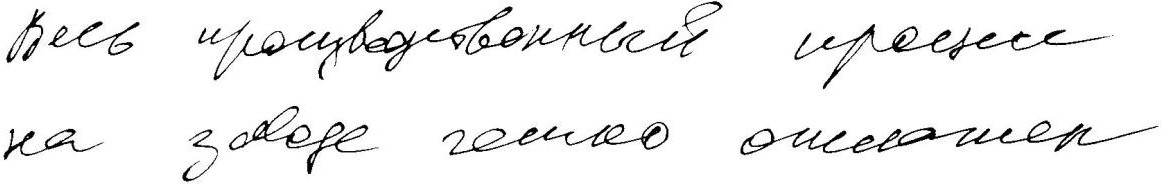 Весь производственный процесс
на заводе четко отлажен